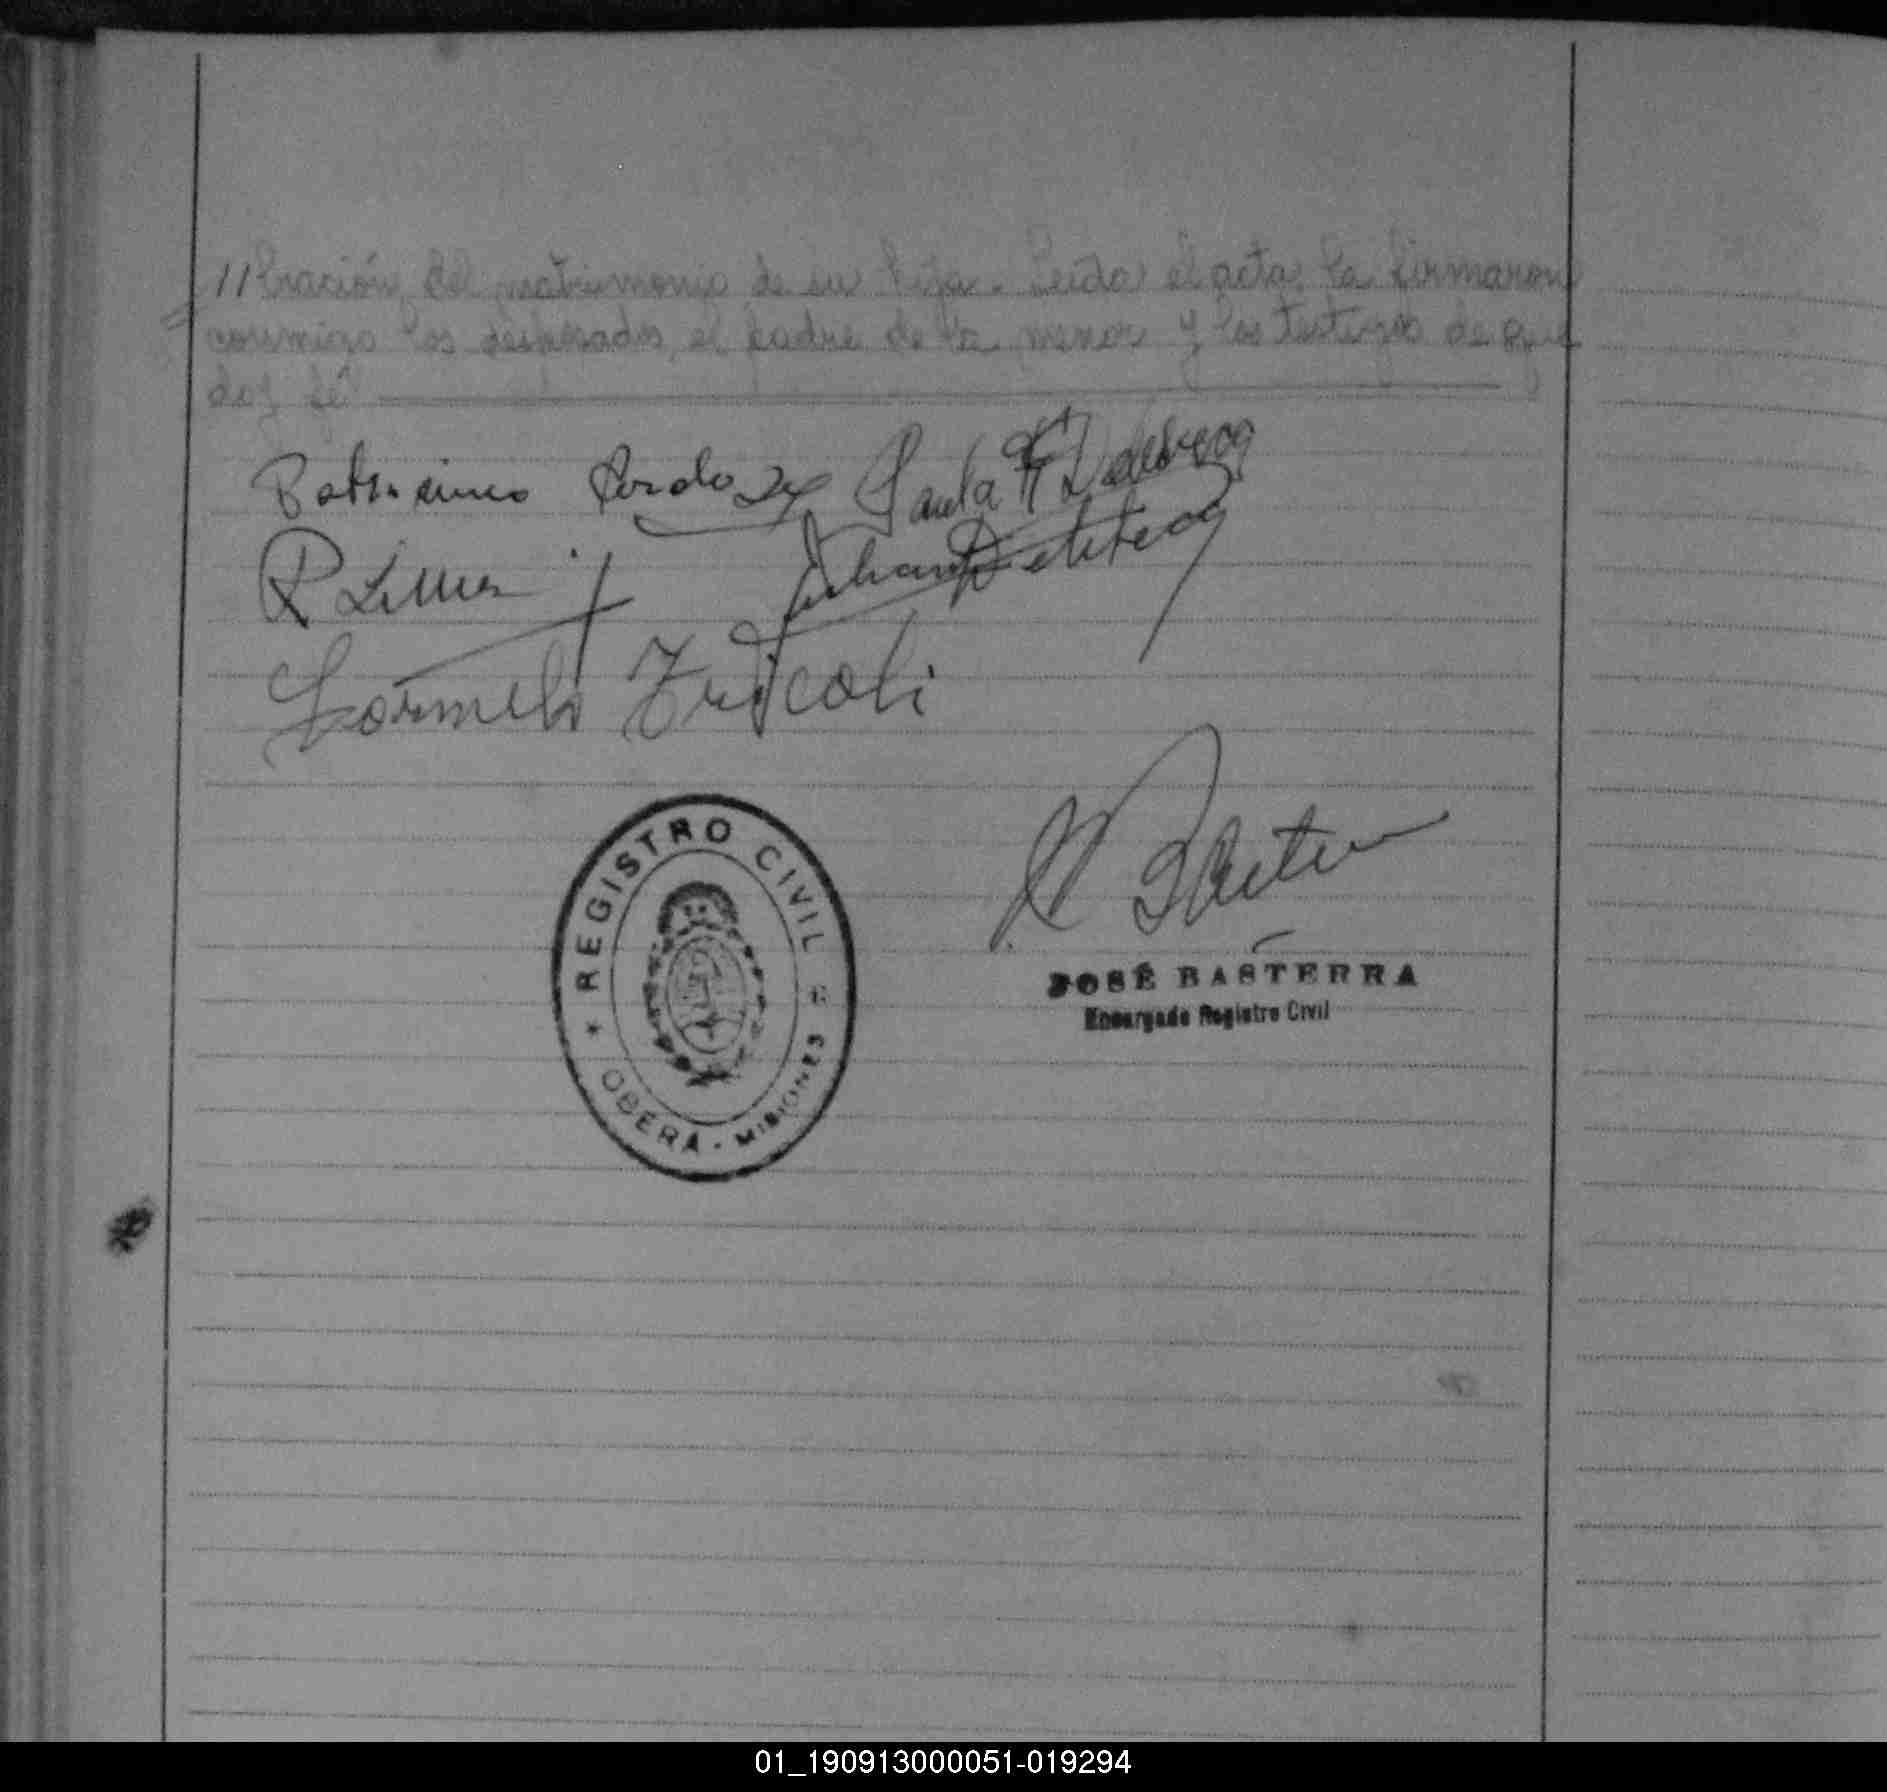 //bración del matrimonio de su hija. Leída el acta, la firmaron
conmigo los desposados, el padre de la menor y los testigos de que
doy fé
Cardozo Paula
Carmelo Tricoli
REGISTRO CIVIL
OBERÁ - MISIONES
JOSÉ BASTERRA
Encargado Registro Civil
01_190913000051-019294